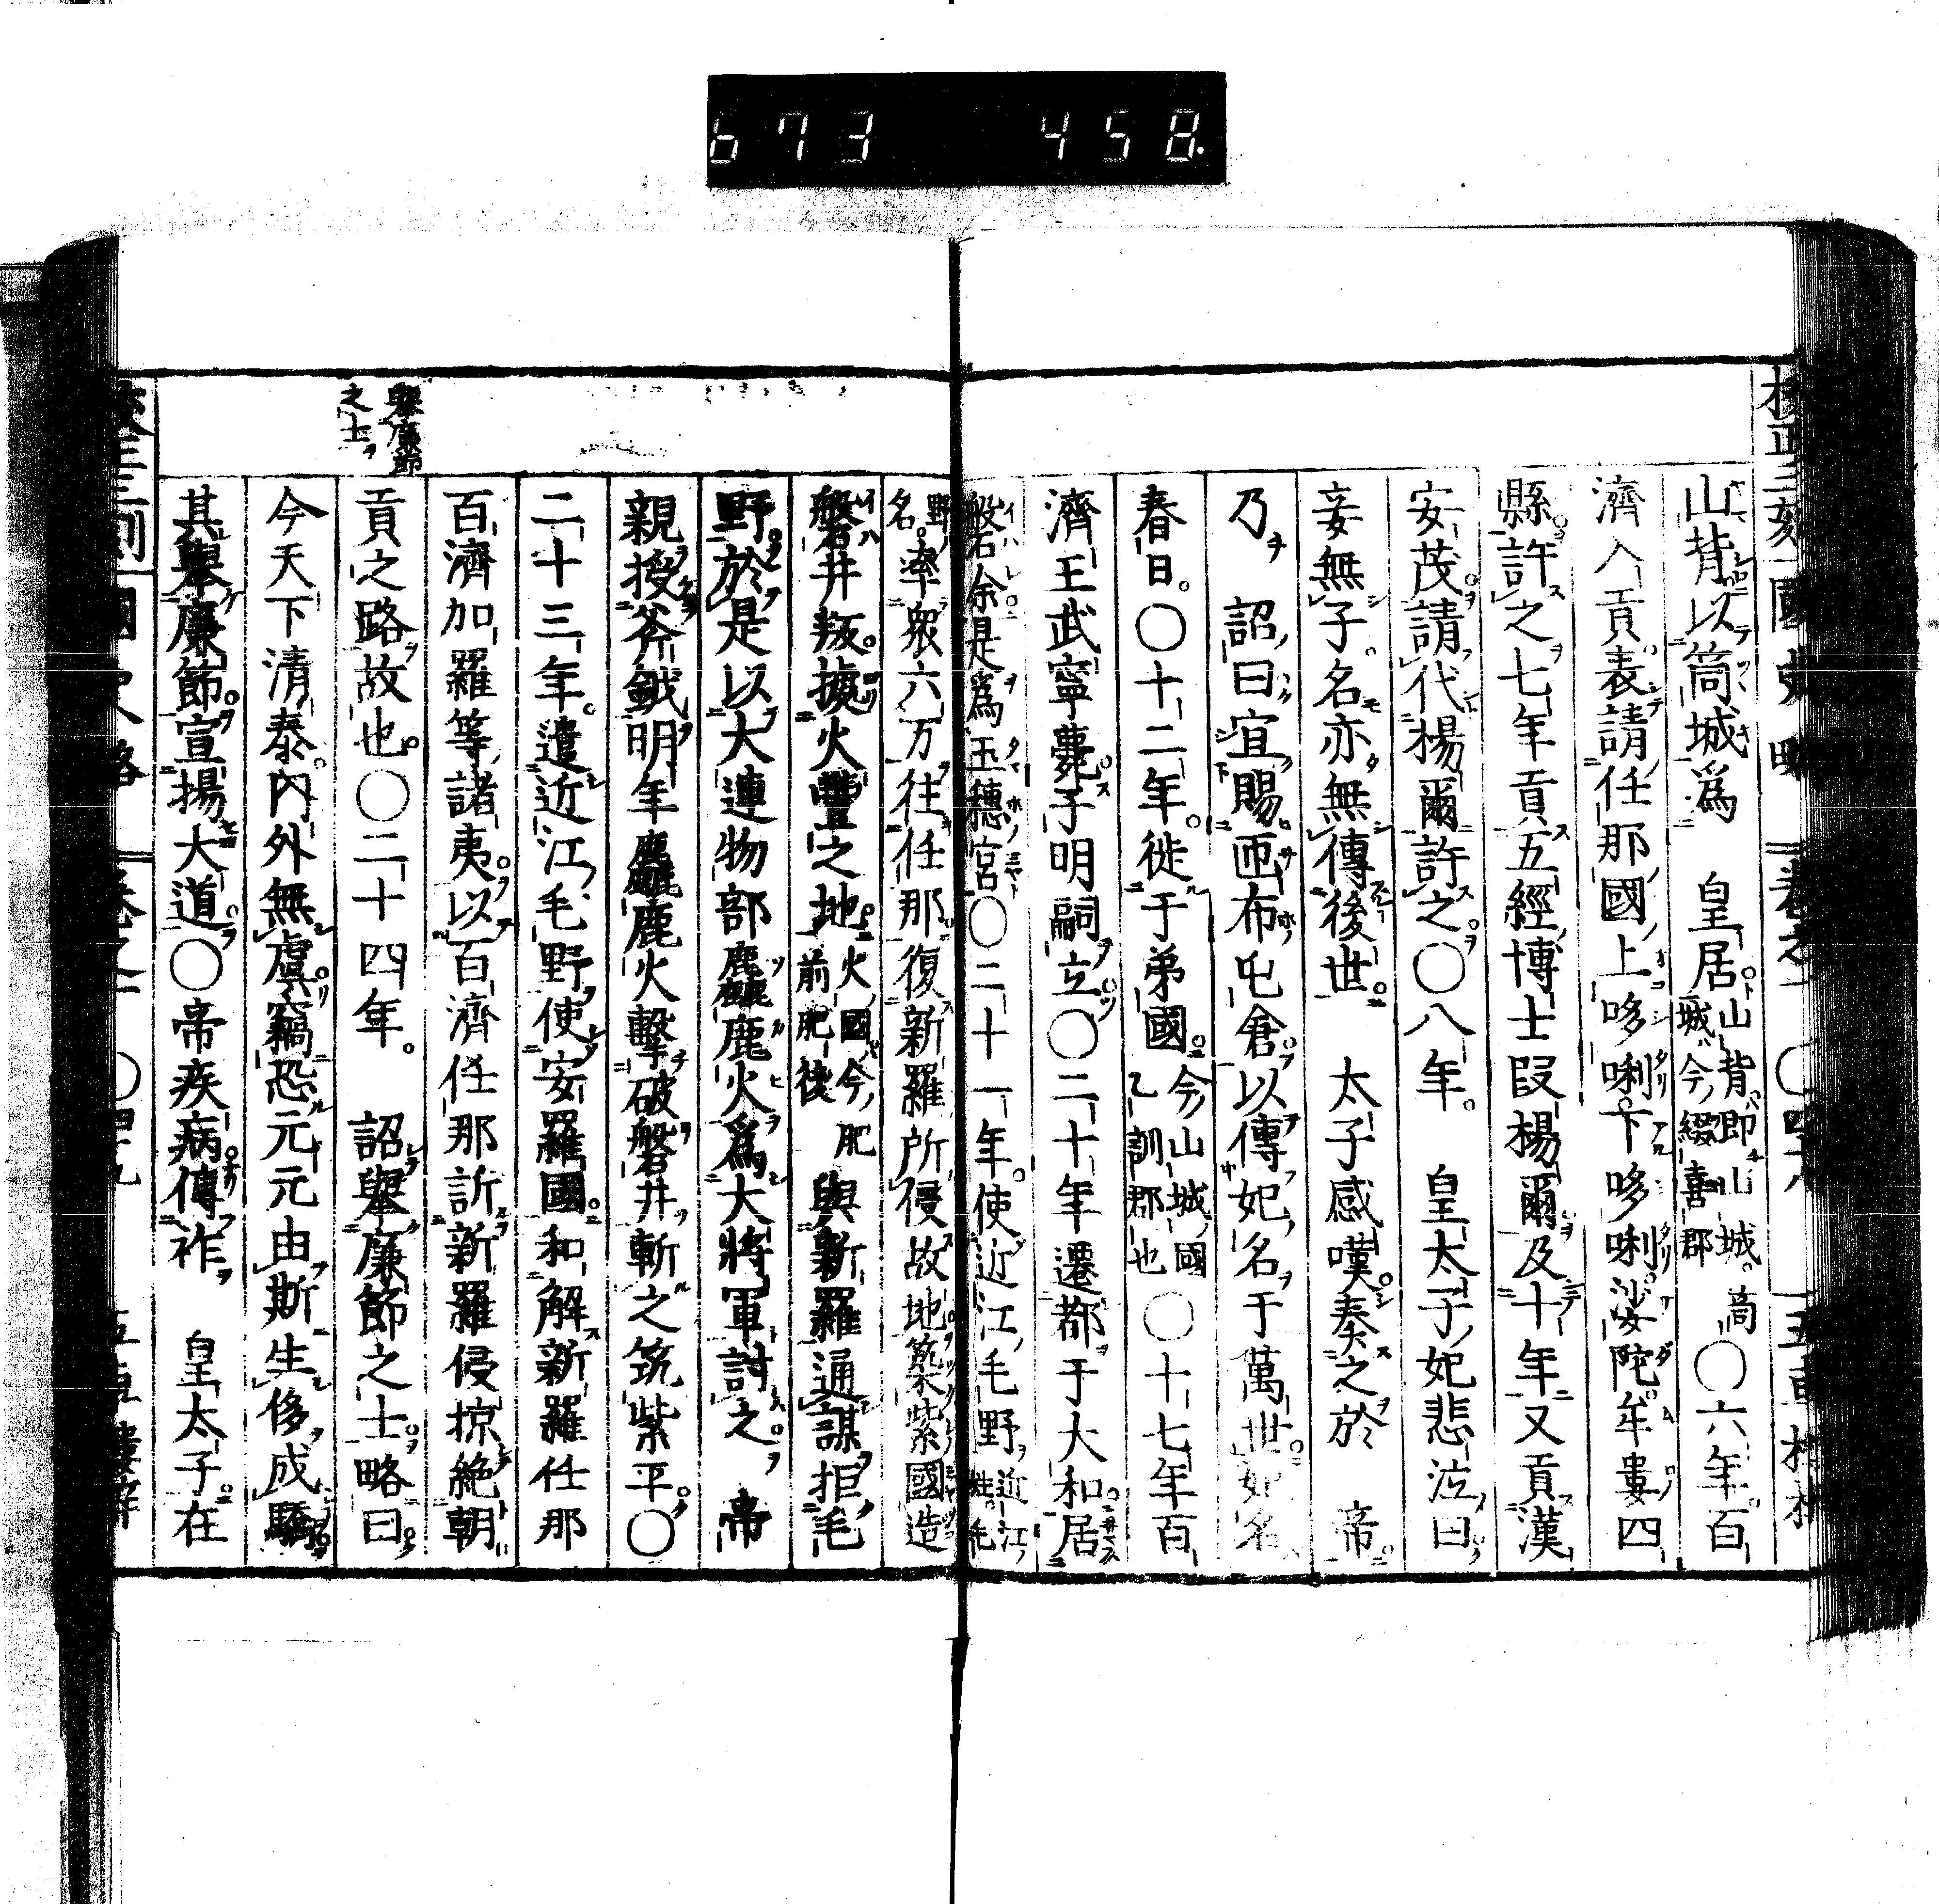 673 458.
校正三刻國史略
卷之一
〇四十八
山背。以筒城爲 皇居。山背即山城。筒城今綴喜郡〇六年。百
濟入貢。表請任那國上哆唎下哆唎。娑陀。牟婁四
縣。許之。七年貢五經博士段楊爾。及十年又貢漢
安茂。請代楊爾許之。〇八年。 皇太子妃悲泣曰。
妾無子。名亦無傳後世。 太子感嘆。奏之於 帝。
乃 詔曰。宜賜匝布屯倉。以傳妃名于萬世。妃名
春日。〇十二年。徙于弟國。今山城國乙訓郡也〇十七年百
濟王武寧薨。子明嗣立。〇二十年遷都于大和。居
磐余。是爲玉穗宮〇二十一年。使近江毛野近江姓。毛
野名。率衆六万往任那。復新羅所侵故地。築紫國造
磐井叛。據火豐之地。火國今肥前肥後與新羅通謀。拒毛
野。於是以大連物部麤鹿火爲大將軍討之。 帝
親授斧鉞。明年麤鹿火擊破磐井。斬之筑紫平。〇
二十三年。遣近江毛野使安羅國。和解新羅任那
百濟加羅等諸夷。以百濟任那訴新羅侵掠絶朝
貢之路故也。〇二十四年。 詔舉廉節之士。略曰。
今天下清泰。內外無虞。竊恐元元由斯生侈成驕。
其舉廉節。宣揚大道。〇帝疾病。傳祚 皇太子。在
舉廉節
之士
國史略